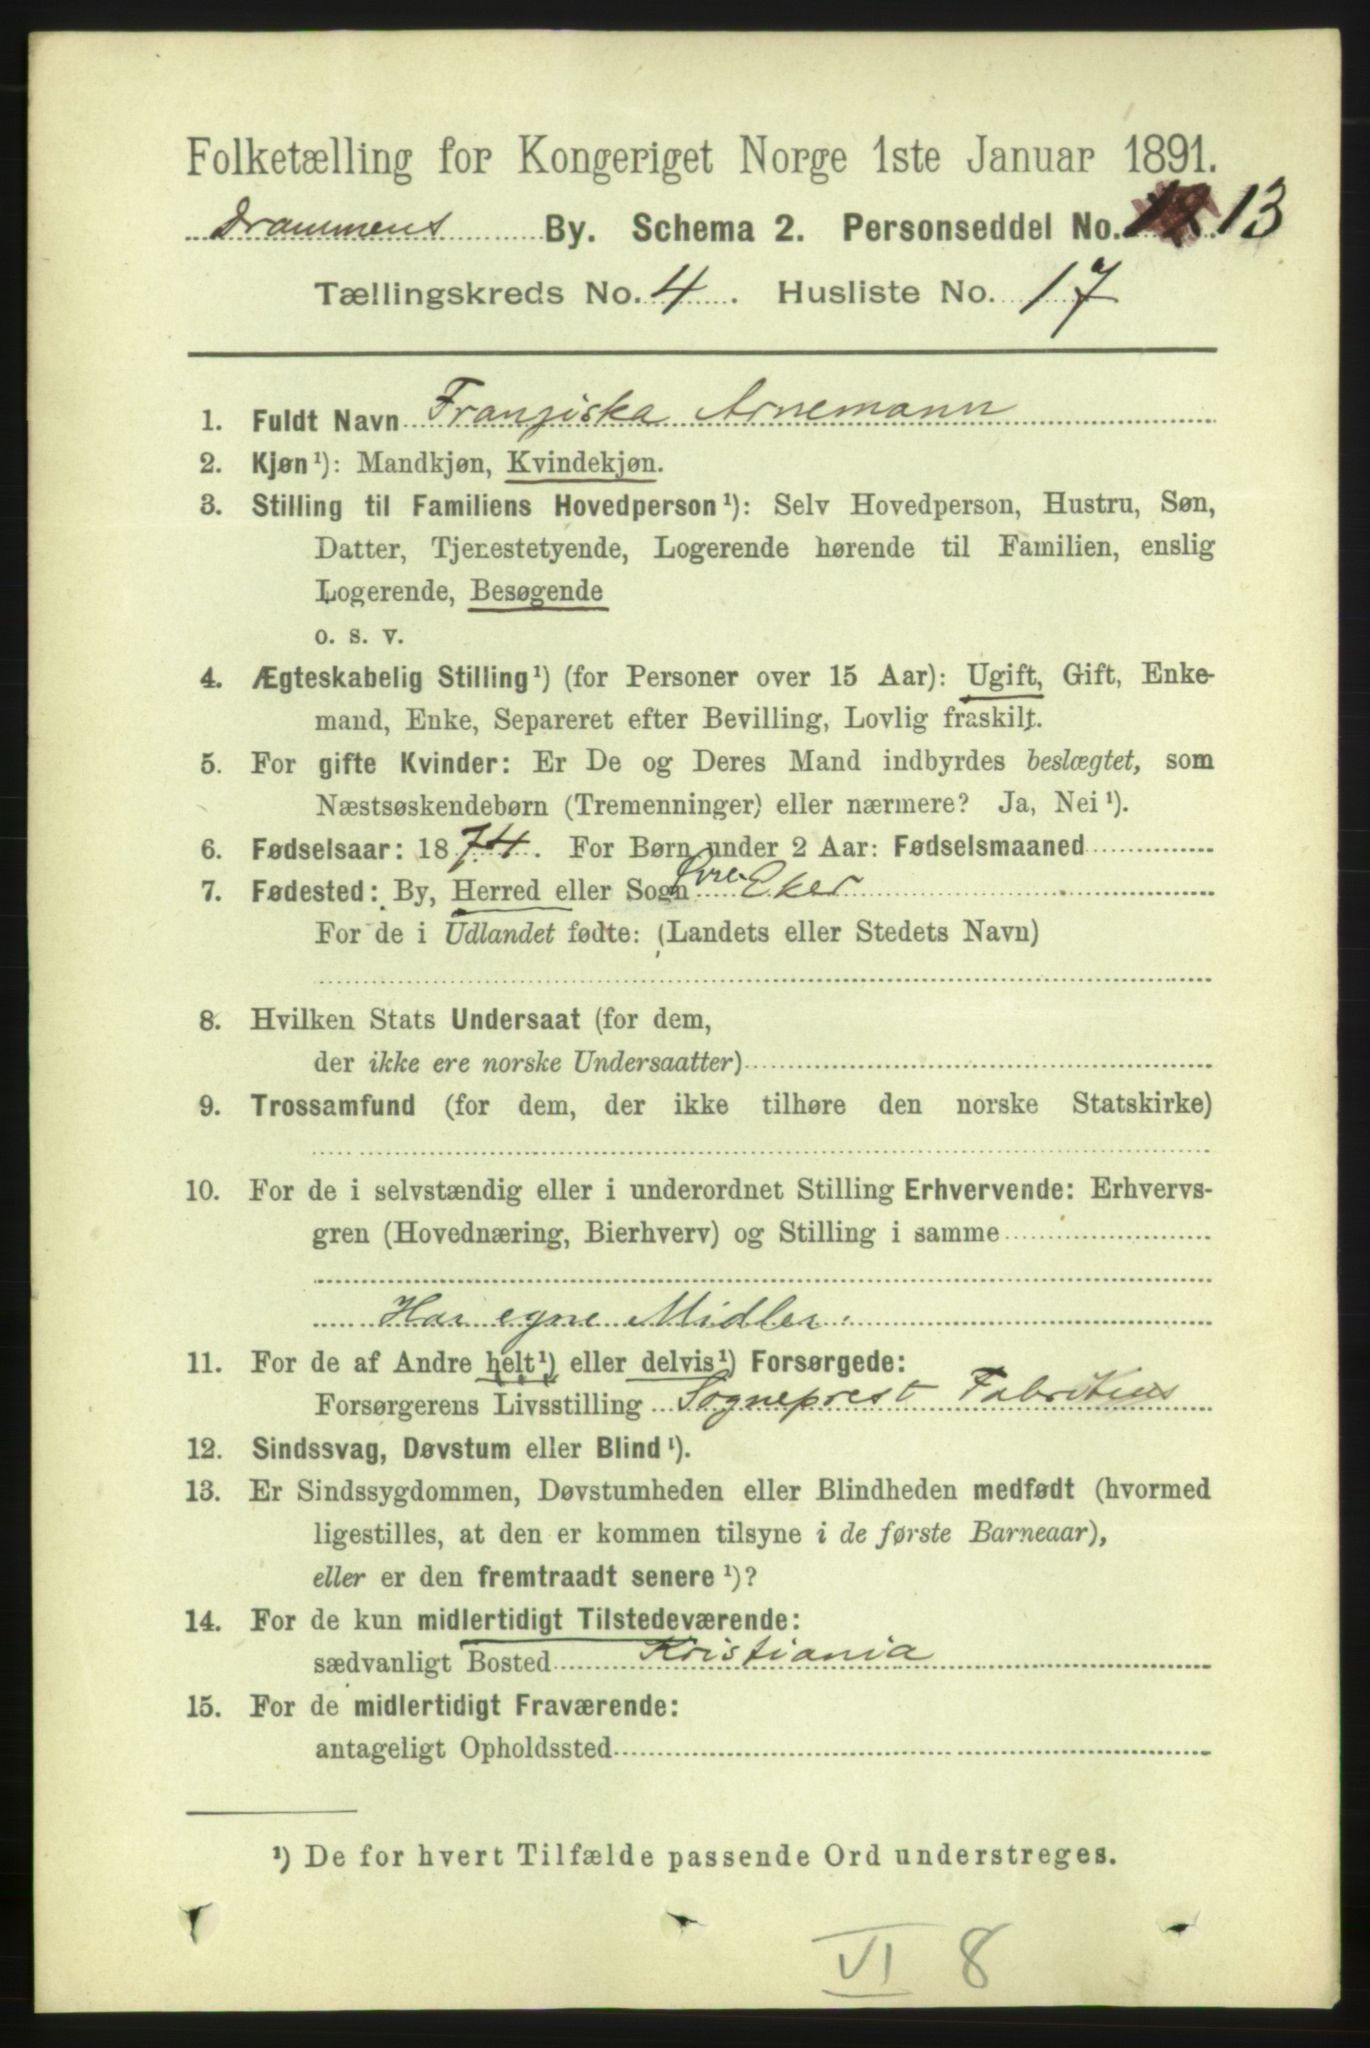 Folketælling for Kongeriget Norge 1ste Januar 1891.
Drammens By. Schema 2. Personseddel No. 12 13
Tællingskreds No. 4. Husliste No. 17
1. Fuldt Navn Franziska Arnemann
2. Kjøn¹): Mandkjøn, Kvindekjøn.
3. Stilling til Familiens Hovedperson¹): Selv Hovedperson, Hustru, Søn,
Datter, Tjenestetyende, Logerende hørende til Familien, enslig
Logerende, Besøgende
o. s. v.
4. Ægteskabelig Stilling¹) (for Personer over 15 Aar): Ugift, Gift, Enke-
mand, Enke, Separeret efter Bevilling, Lovlig fraskilt.
5. For gifte Kvinder: Er De og Deres Mand indbyrdes beslægtet, som
Næstsøskendebørn (Tremenninger) eller nærmere? Ja, Nei¹).
6. Fødselsaar: 1874. For Børn under 2 Aar: Fødselsmaaned
7. Fødested: By, Herred eller Sogn Øvre Eker
For de i Udlandet fødte: (Landets eller Stedets Navn)
8. Hvilken Stats Undersaat (for dem,
der ikke ere norske Undersaatter)
9. Trossamfund (for dem, der ikke tilhøre den norske Statskirke)
10. For de i selvstændig eller i underordnet Stilling Erhvervende: Erhvervs-
gren (Hovednæring, Bierhverv) og Stilling i samme
Har egne Midler.
11. For de af Andre helt¹) eller delvis¹) Forsørgede:
Forsørgerens Livsstilling Sogneprest Fabritius
12. Sindssvag, Døvstum eller Blind¹).
13. Er Sindssygdommen, Døvstumheden eller Blindheden medfødt (hvormed
ligestilles, at den er kommen tilsyne i de første Barneaar),
eller er den fremtraadt senere¹)?
14. For de kun midlertidigt Tilstedeværende:
sædvanligt Bosted Kristiania
15. For de midlertidigt Fraværende:
antageligt Opholdssted
¹) De for hvert Tilfælde passende Ord understreges.
VI 8